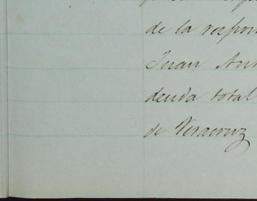 de la respon
Juan An
deuda total
de Veracruz